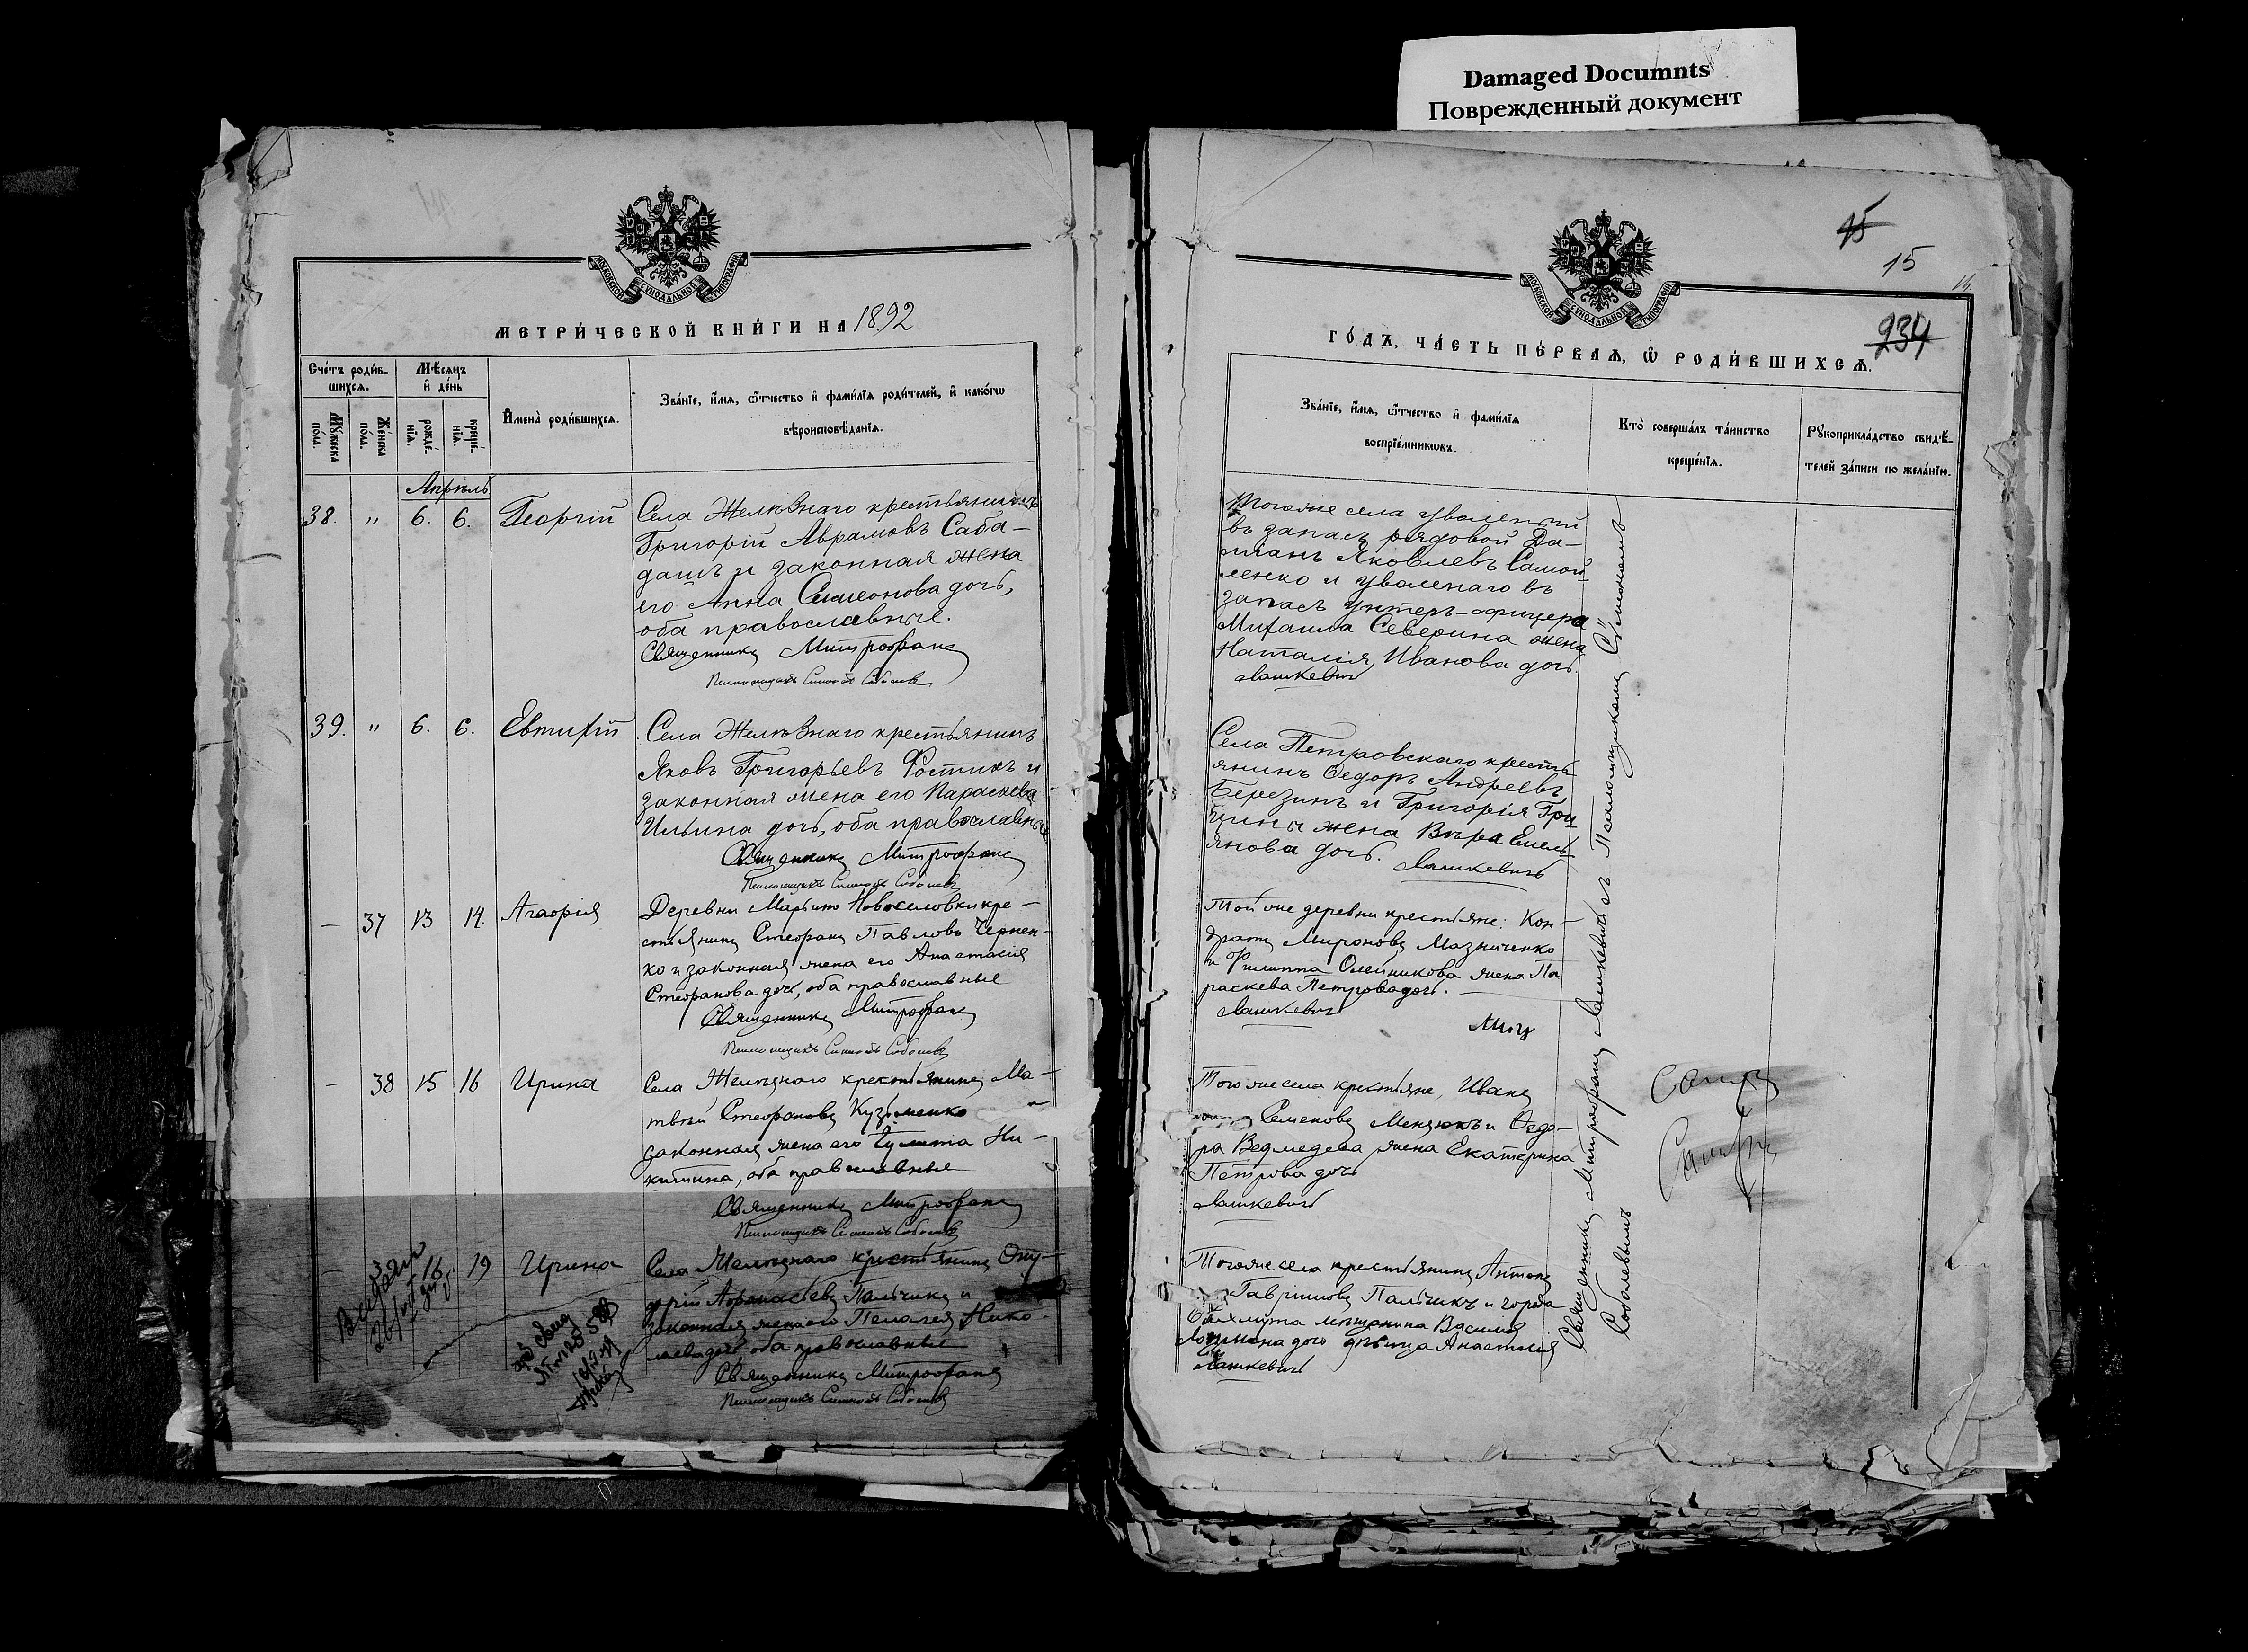 Damaged Documnts
Поврежденный документ
МОСКОВСКОЙ СѴНОДАЛЬНОЙ ТИПОГРАФІИ
МЕТРИ́ЧЕСКОЙ КНИ́ГИ НА 1892
Сче́тъ роди́в-
шихсѧ.
Мѣ́сѧцъ
и҆ де́нь
Мꙋ́жеска
по́ла.
Же́нска
по́ла.
рожде́-
нїѧ.
креще́-
нїѧ.
И҆мена̀ роди́вшихсѧ.
Зва́нїе, и҆́мѧ, ѻ҆́тчество и҆ фами́лїѧ роди́телей, и҆ како́гѡ
вѣроисповѣ́данїѧ.
Апрѣль
38. " 6. 6. Георгій
Села Желѣзнаго крестьянинъ
Григорій Аврамовъ Саба-
дашъ и законная жена
его Анна Симеонова дочь,
оба православные.
Священникъ Митрофанъ
Псаломщикъ Симеонъ Соболевъ
39. " 6. 6. Евтихій
Села Желѣзнаго крестьянинъ
Яковъ Григорьевъ Фостикъ и
законная жена его Параскева
Ильина дочь, оба православные
Священникъ Митрофанъ
Псаломщикъ Симеонъ Соболевъ
— 37 13 14. Агафія
Деревни Марьино Новоселовки кре-
стьянинъ Стефанъ Павловъ Чернен-
ко и законная жена его Анастасія
Стефанова дочь, оба православные
Священникъ Митрофанъ
Псаломщикъ Симеонъ Соболевъ
— 38 15 16 Ирина
Села Желѣзнаго крестьянинъ Ма-
твѣй Стефановъ Кузьменко
законная жена его Іулитта Ни-
китина, оба православные
Священникъ Митрофанъ
Псаломщикъ Симеонъ Соболевъ
16 19 Ирина
Села Желѣзнаго крестьянинъ Ону-
фрій Афанасьевъ Пальчикъ и
законная жена его Пелагея Нико-
лаева дочь оба православные
Священникъ Митрофанъ
Псаломщикъ Симеонъ Соболевъ
15
15
234
МОСКОВСКОЙ СѴНОДАЛЬНОЙ ТИПОГРАФІИ
ГО́ДЪ, ЧА́СТЬ ПЕ́РВАѦ, Ѽ РОДИ́ВШИХСѦ.
Зва́нїе, и҆́мѧ, ѻ҆́тчество и҆ фами́лїѧ
воспрїе́мникѡвъ.
Кто̀ соверша́лъ та́инство
креще́нїѧ.
Рꙋкоприкла́дство свидѣ́-
телей за́писи по жела́нїю.
Того же села уволеный
въ запасъ рядовой Да-
міанъ Яковлевъ Самой-
ленко и уволенаго въ
запасъ унтеръ-офицера
Михаила Северина жена
Наталія Иванова дочь.
Лашкевичъ
Села Петровскаго кресть-
янинъ Ѳедоръ Андреевъ
Березинъ и Григорія Гри-
жена Вѣра Емель-
янова дочь.
Лашкевичъ
Той же деревни крестьяне: Кон-
дратъ Мироновъ Мазниченко
и Филиппа Олейникова жена Па
раскева Петрова дочь.
Лашкевичъ
Того же села крестьяне, Иванъ
Семеновъ Мензюкъ и Ѳедо-
ра Ведмедева жена Екатерина
Петрова дочь
Лашкевичъ
Того же села крестьянинъ Антонъ
Гавриловъ Пальчикъ и города
Бахмута мѣщанина Василія
дочь дѣвица Анастасія
Лашкевичъ
Священникъ Митрофанъ Лашкевичъ съ Псаломщикомъ Симеономъ
Соболевымъ